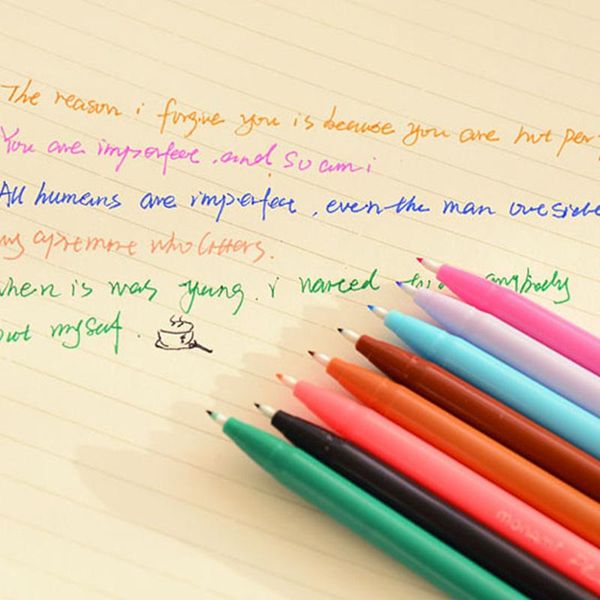 The reason i forgive you is because you are not per
You are imperfect .and so am i
All humans are imperfect . even the man outside
my apremore who litters.
when is was young. i wanted to be anybody
but myself.
monami